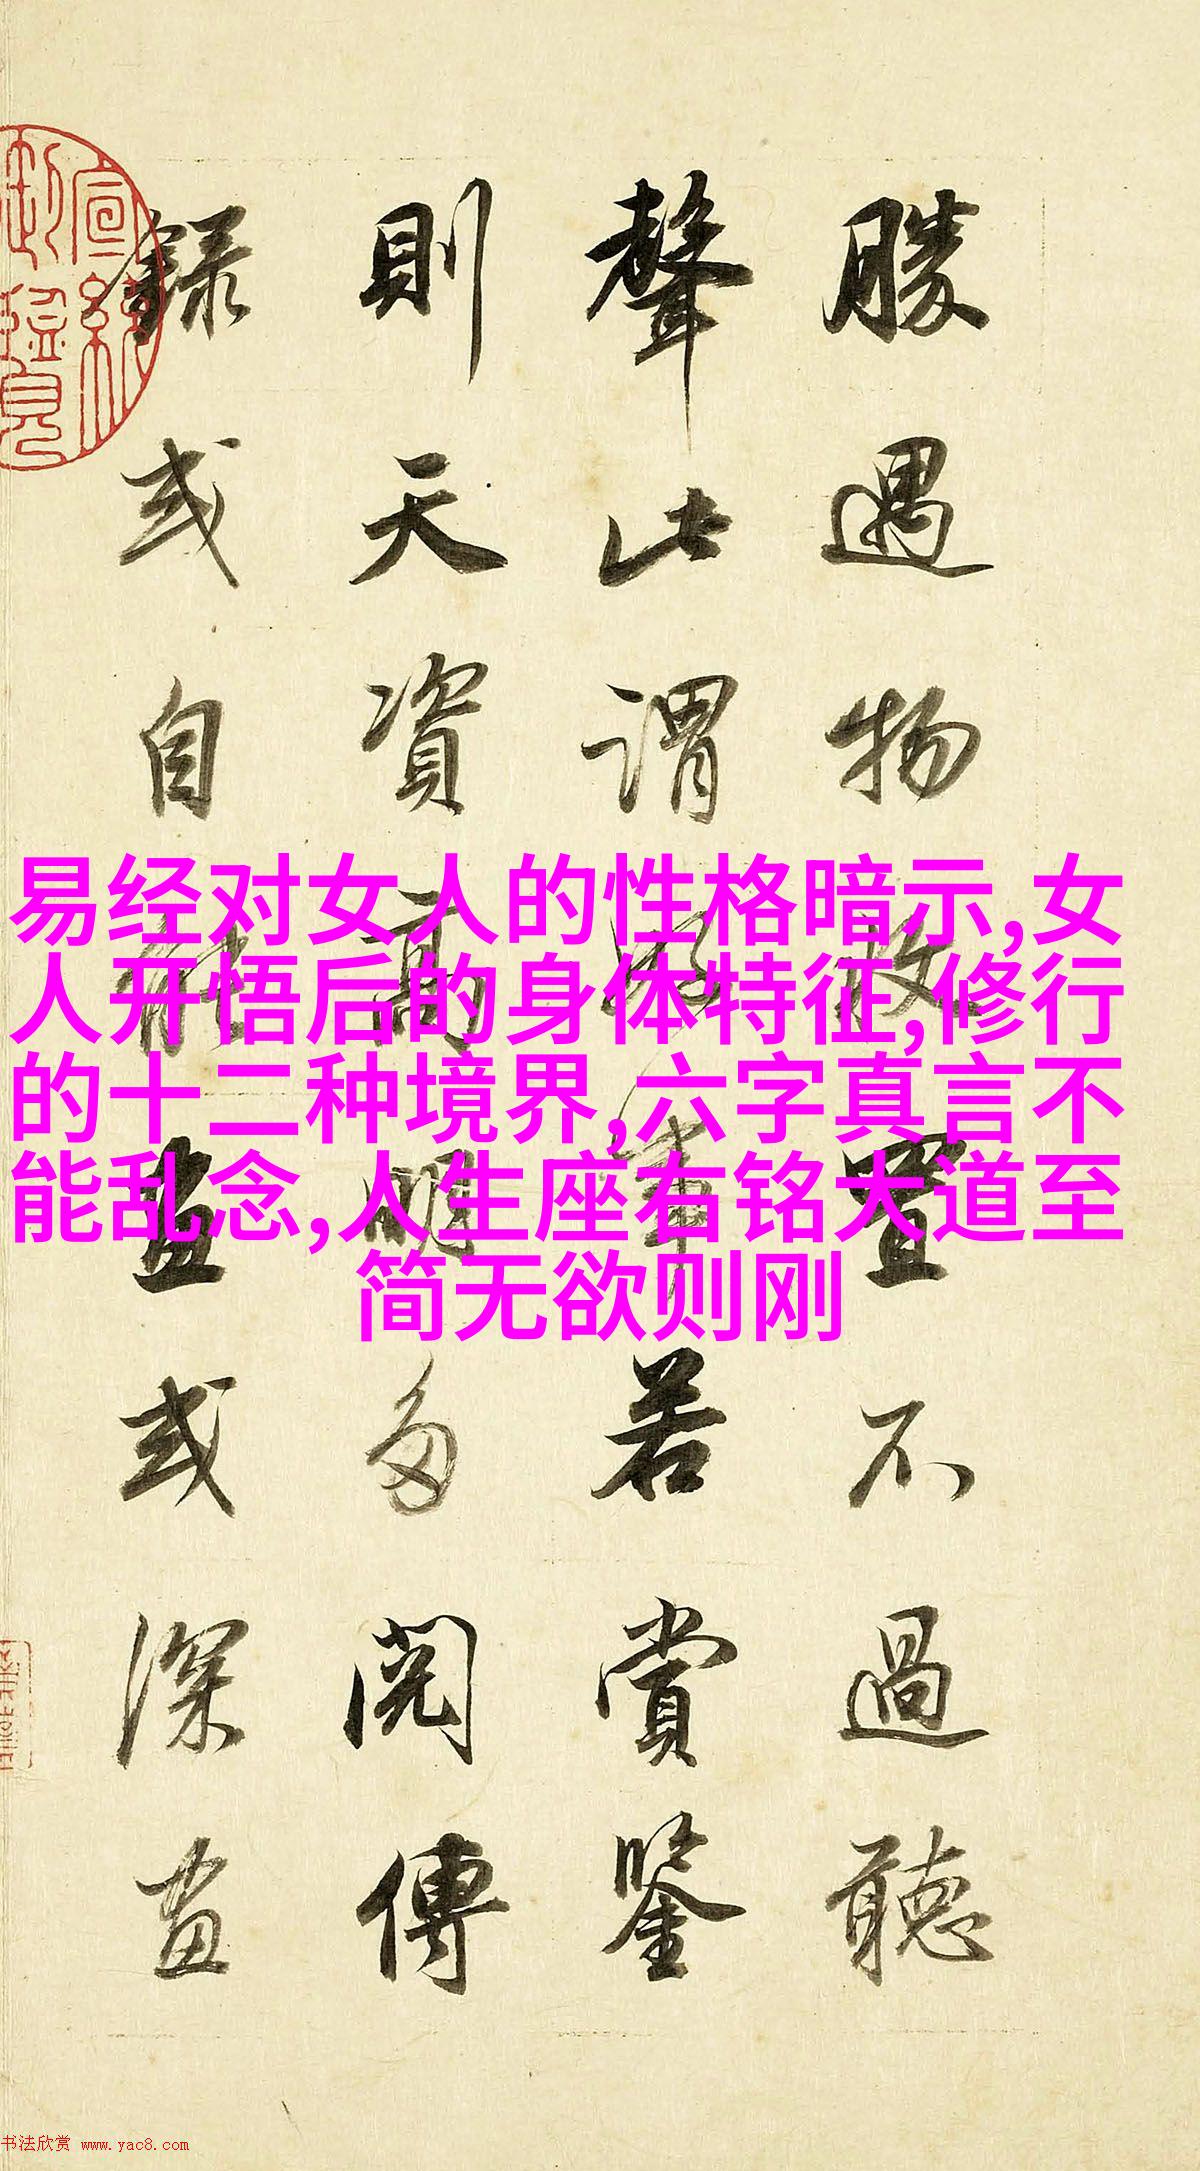 勝遇物收置不過聽
聲此謂好事若賞鑒
則天資高明多閱傳
錄或自能畫或深畫
易经对女人的性格暗示,女
人开悟后的身体特征,修行
的十二种境界,六字真言不
能乱念,人生座右铭大道至
简无欲则刚
书法欣赏 www.yac8.com